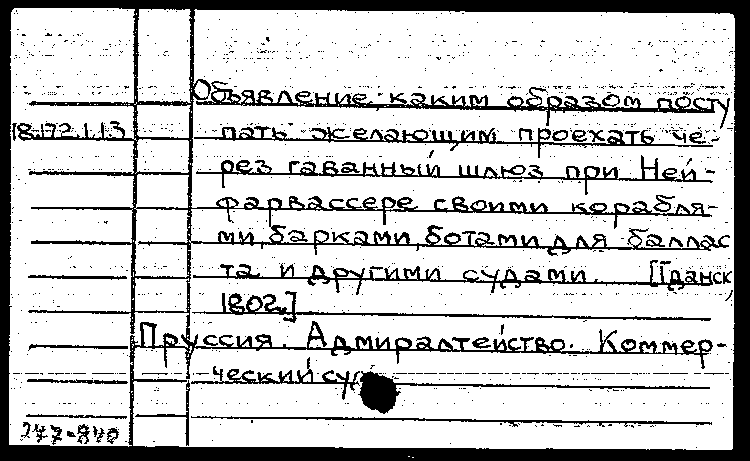 Объявление, каким образом посту
18.172.1.13 пать желающим проехать че-
рез гаванный шлюз при Ней-
фарвассере своими корабля-
ми, барками, ботами для баллас
та и другими судами. [Гданск,
1802.]
Пруссия. Адмиралтейство. Коммер-
ческий суд
277-840